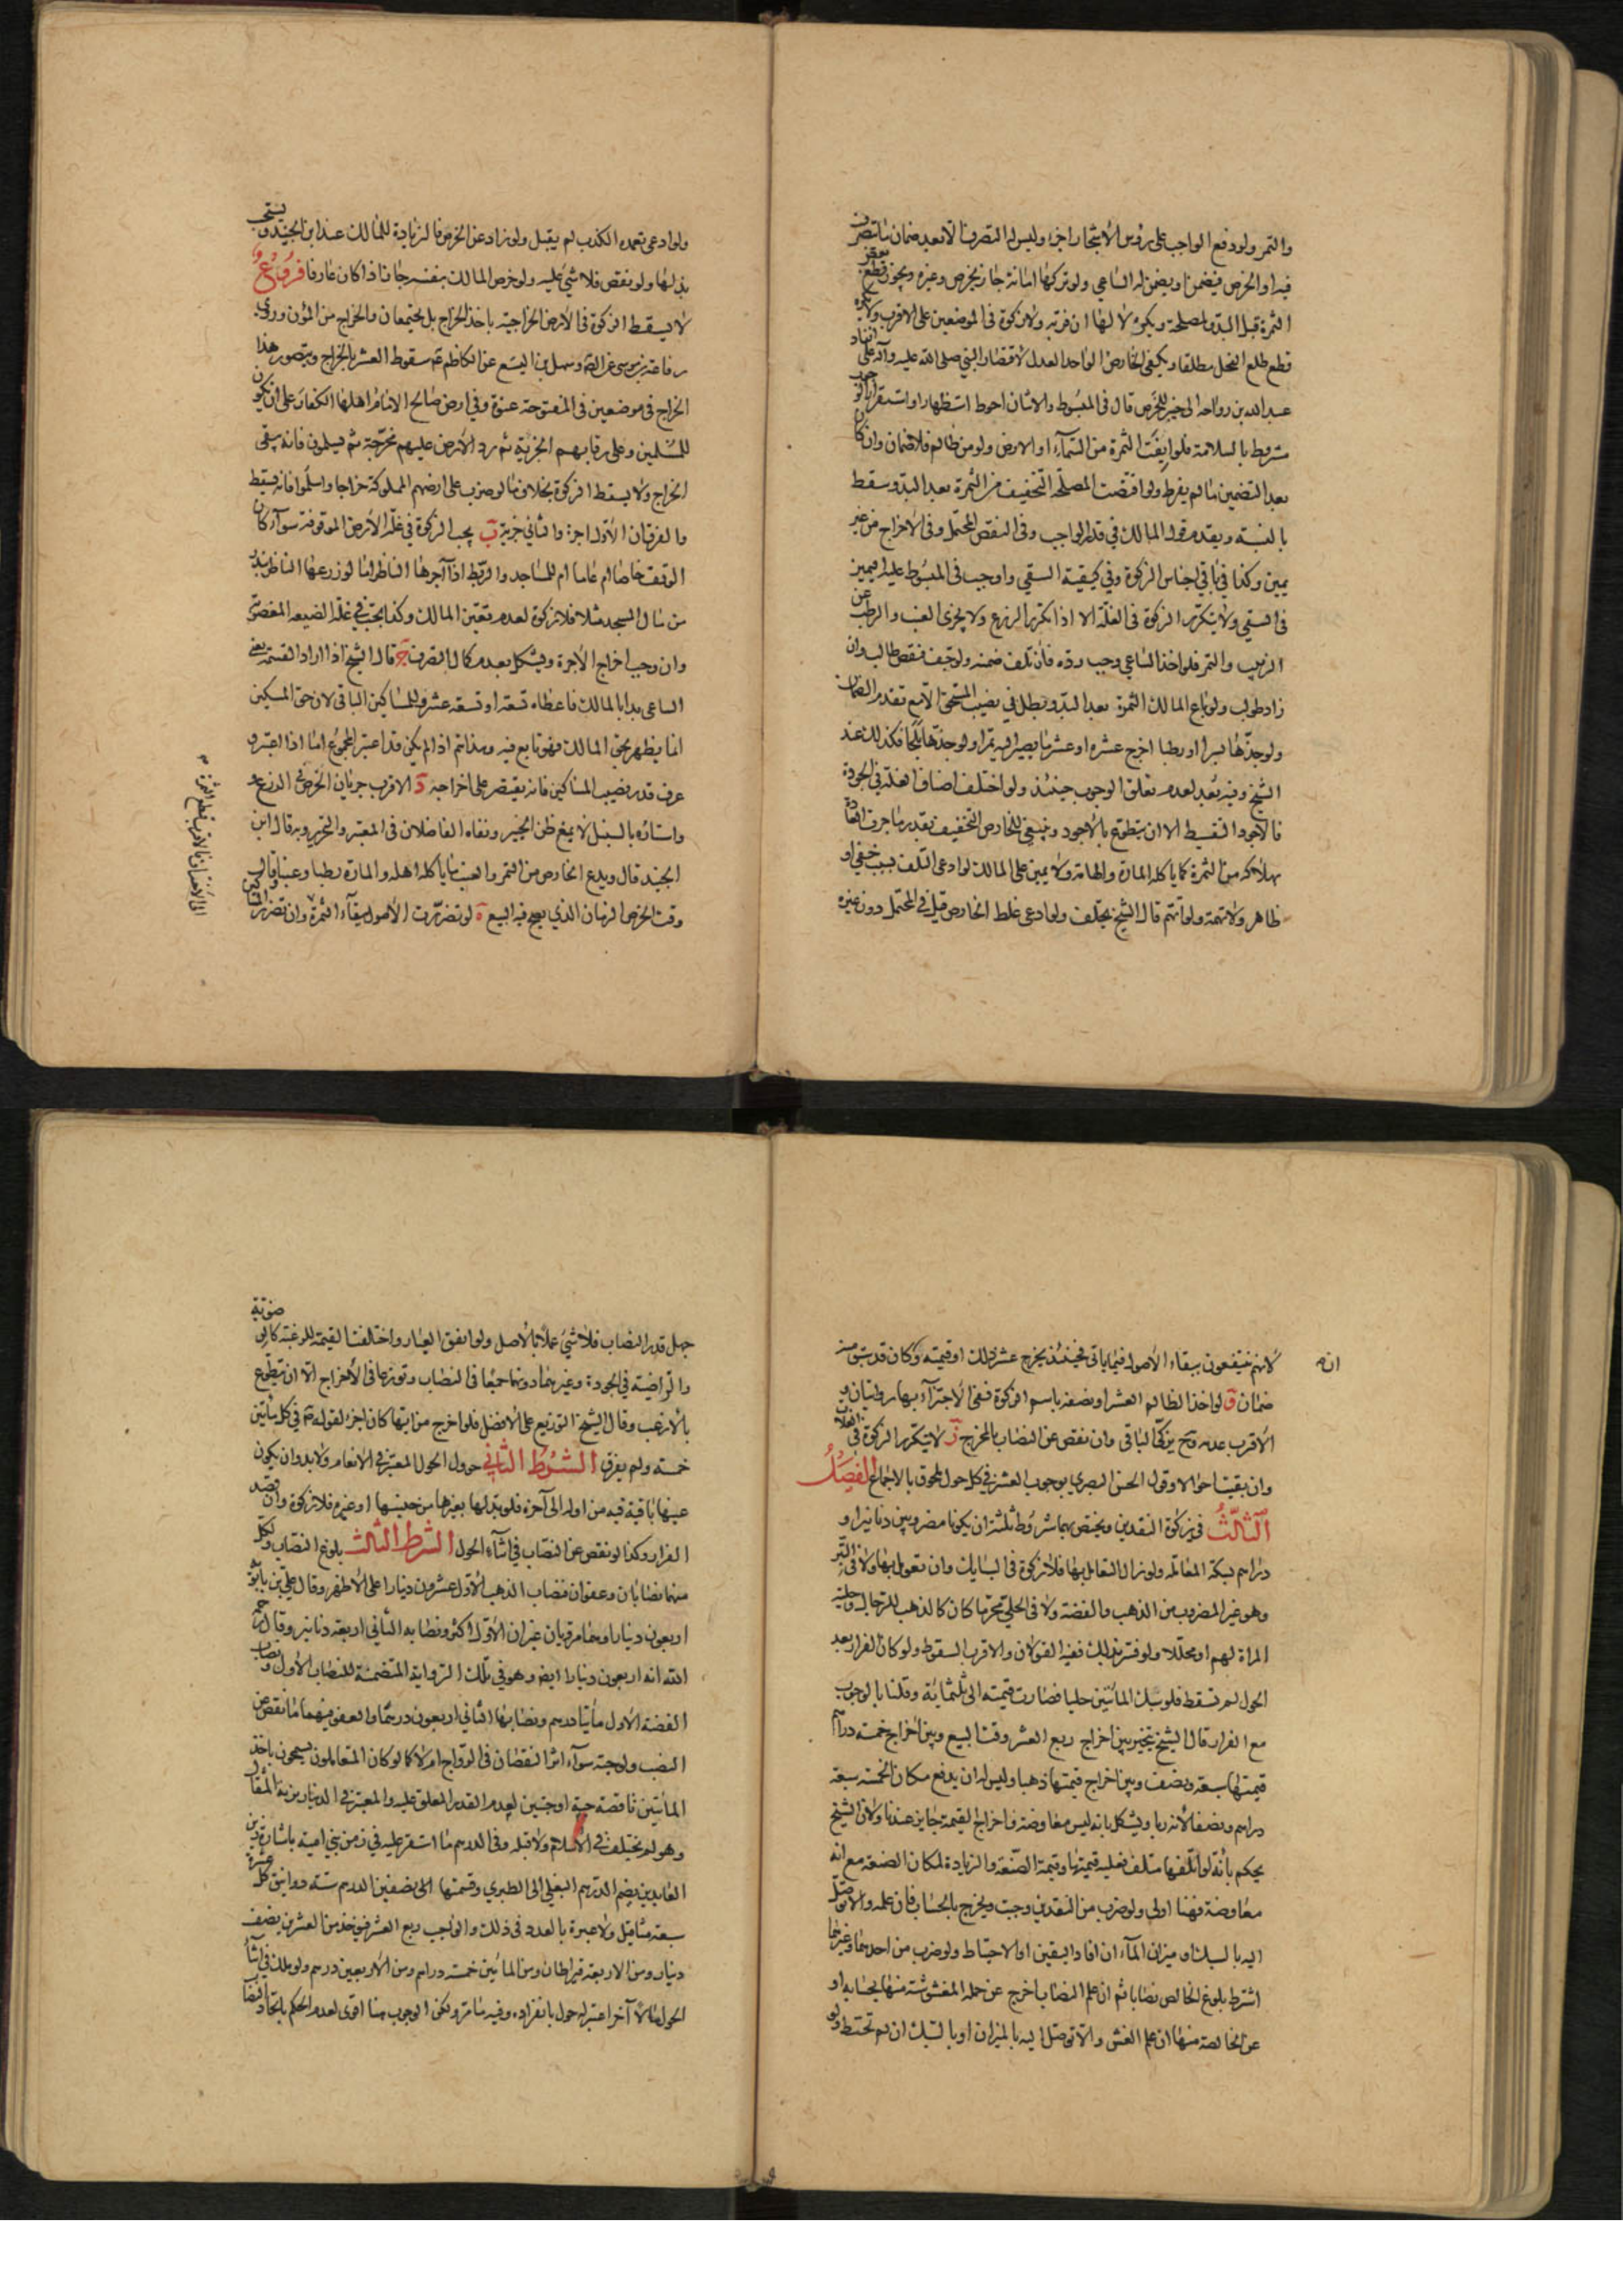 والتمر ولو دفع الواجب على رؤس الاشجار اجزا وليس له التصرف الا بعد ضمان ما يتصرف
فيه او الخرص فيضمن او يضمن له الساعي ولو تركها امانة جاز بخرص وغيره ويجوز قطع بعض
الثمرة قبل البدو لمصلحة ويكره لا لها ان فر به ولا زكوة في الموضعين على الاقرب ولا يكره
قطع طلع الفحل مطلقا ويكفي الخارص الواحد العدل لاقتصار النبي صلى الله عليه وآله على انفاد
عبد الله بن رواحة الى خيبر للخرص قال في المبسوط والاثنان احوط استظهارا واستقرار الوجوب
مشروط بالسلامة فلو ايفت الثمرة من السماء او الارض ولو من ظالم فلا ضمان وان كان
بعد التضمين ما لم يفرط ولو اقتضت المصلحة التخفيف من الثمرة بعد البدو سقط
بالنسبة ويقدم قول المالك في قدر الواجب وفي النقص المحتمل وفي الاخراج من غير
يمين وكذا في باقي اجناس الزكوة وفي كيفية السقي واوجب في المبسوط عليه اليمين
في السقي ولا يتكرر الزكوة في الغلة الا اذا تكرر الزرع ولا يجزى العنب والرطب عن
الزبيب والتمر فلو اخذ الساعي وجب رده فان تلف ضمنه ولو جفف فنقص طالب وان
زاد طولب ولو باع المالك الثمرة بعد البدو بطل في نصيب المستحق الا مع تقدم الضمان
ولو جذها بسرا او رطبا اخرج عشره او عشر ما يصير اليه تمرا ولو جذها بلحا فكذلك عند
الشيخ وفيه بعد لعدم تعلق الوجوب حينئذ ولو اختلف اصناف الغلة في الجودة
فالاجود التقسيط الا ان يتطوع بالاجود وينبغي للخارص التخفيف بقدر ما جرت العادة
بهلاكه من الثمرة كما ياكله المارة والهامة ولا يمين على المالك لو ادعى التلف بسبب خفي او
ظاهر ولا تهمة ولو اتهم قال الشيخ يحلف ولو ادعى غلط الخارص قبل في المحتمل دون غيره
ولو ادعى تعمده الكذب لم يقبل ولو زاد عن الخرص فالزيادة للمالك عند ابن الجنيد ويستحب
بذلها ولو نقص فلا شيئ عليه ولو خرص المالك بنفسه جاز اذا كان عارفا فروع ا
لا يسقط الزكوة في الارض الخراجية باخذ الخراج بل يجتمعان والخراج من المؤن وروى
رفاعة بن موسى عن الصم وسهل بن اليسع عن الكاظم عم سقوط العشر بالخراج ويتصور هذا
الخراج في موضعين في المفتوحة عنوة وفي ارض صالح الامام اهلها الكفار على ان يكون
للمسلمين وعلى رقابهم الجزية ثم رد الارض عليهم مخرجة ثم يسلمون فانه يبقى
الخراج ولا يسقط الزكوة بخلاف ما لو ضرب على ارضهم المملوكة خراجا واسلموا فانه يسقط
والفرقان الاول اجرة والثاني جزية ب يجب الزكوة في غلة الارض الموقوفة سواء كان
الوقف خاصا ام عاما ام للمساجد والربط اذا آجرها الناظر اما لو زرعها الناظر ببذر
من مال المسجد مثلا فلا زكوة لعدم تعين المالك وكذا يجب في غلة الضيعه المغصوبة
وان وجب اخراج الاجرة ويشكل بعدم كمال التصرف ج قال الشيخ اذا اراد القسمة يعني
الساعي بدا بالمالك فاعطاه تسعة او تسعة عشر وللمساكين الباقي لان حق المسكين
انما يظهر بحق المالك فهو تابع فيه وهذا تم اذا لم يكن قد اعتبر المجموع اما اذا اعتبر و
عرف قدر نصيب المساكين فانه يقتصر على اخراجه د الاقرب جريان الخرص في الزرع و
واستاره بالسنبل لا يمنع ظن الخبير ونفاه الفاضلان في المعتبر والتحرير وبه قال ابن
الجنيد قال ويدع الخارص من التمر والعنب ما ياكله اهله والمارة رطبا وعنبا وقال
وقت الخرص الزمان الذي يصح فيه البيع ه لو تضررت الاصول ببقاء الثمرة وان تضرر المساكين
لانهم ينتفعون ببقاء الاصول فيما ياتي فحينئذ يخرج عشر ذلك او قيمته وكان قد سبق منه
انه
ضمان و لو اخذ الظالم العشر او نصفه باسم الزكوة ففي الاجتزاء بها روايتان و
الاقرب عدمه وح يزكي الباقي وان نقص عن النصاب بالمخرج ز لا يتكرر الزكوة في الغلات
وان بقيت احوالا وقول الحسن البصري بوجوب العشر في كل حول ملحوق بالاجماع الفصل
الثالث في زكوة النقدين ويختص بهما شروط ثلثة ان يكونا مضروبين دنانير او
دراهم بسكة المعاملة ولو زال التعامل بها فلا زكوة في السبايك وان تعومل بها ولا في التبر
وهو غير المضروب من الذهب والفضة ولا في الحلي محرما كان كالذهب للرجال وحلية
المراة لهم او محللا ولو فر بذلك ففيه القولان والاقرب السقوط ولو كان الفرار بعد
الحول لم تسقط فلو سبك المأتين حليا فصارت قيمته الى ثلثمائة وقلنا بالوجوب
مع الفرار قال الشيخ يتخير بين اخراج ربع العشر وقت البيع وبين اخراج خمسة دراهم
قيمتها سبعة ونصف وبين اخراج قيمتها ذهبا وليس له ان يدفع مكان الخمسة سبعة
دراهم ونصفا لانه ربا ويشكل بانه ليس معاوضة واخراج القيمة جايز عندنا ولان الشيخ
يحكم بانه لو اتلفها متلف فعليه قيمتها وقيمة الصنعة والزيادة لمكان الصنعة مع انه
معاوضة فهنا اولى ولو ضرب من النقدين وجبت ويخرج بالحساب فان علمه والا توصل
اليه بالسبك او ميزان الماء ان افاد اليقين او الاحتياط ولو ضرب من احدهما وغيرهما
اشترط بلوغ الخالص نصابا ثم ان علم النصاب اخرج عن جملة المغشوشة منها بحسابه او
عن الخالصة منها ان علم الغش والا توصل اليه بالميزان او بالسبك ان لم تحتط ولو
جهل قدر النصاب فلا شيئ عملا بالاصل ولو اتفق العيار واختلفت القيمة للرغبة كالرضوية
والراضية في الجودة وغيرهما دونهما جمعا في النصاب وتوزعا في الاخراج الا ان يتطوع
بالارغب وقال الشيخ التوزيع على الافضل فلو اخرج من ايها كان اجزا لقوله عم في كل مأتين
خمسة ولم يفرق الشرط الثاني حول الحول المعتبر في الانعام ولا بد وان يكون
عينها باقية فيه من اوله الى آخره فلو بدلها بغيرها من جنسها او غيره فلا زكوة وان قصد
الفرار وكذا لو نقص عن النصاب في اثناء الحول الشرط الثالث بلوغ النصاب ولكل
منهما نصابان وعفوان فنصاب الذهب الاول عشرون دينارا على الاظهر وقال علي بن بابويه
اربعون دينارا وهما مرويان غير ان الاول اكثر ونصابه الثاني اربعة دنانير وقال رحمه
الله انه اربعون دينارا ايض وهو في تلك الرواية المتضمنة للنصاب الاول ونصاب
الفضة الاول مأتا درهم ونصابها الثاني اربعون درهما والعفو فيهما ما نقص عن
النصب ولو حبة سواء اثر النقصان في الرواج ام لا كما لو كان المتعاملون يسمحون باخذ
المأتين ناقصة حبة او حبتين لعدم القدر المعلق عليه والمعتبر في الدينار بزنة المثقال
وهو لم يختلف في الاسلام ولا قبله وفي الدرهم ما استقر عليه في زمن بني امية باشارة زين
العابدين بضم الدرهم البغلي الى الطبري وقسمتهما الى نصفين الدرهم ستة دوانيق كل عشرة
سبعة مثاقيل ولا عبرة بالعدد في ذلك والواجب ربع العشر فيؤخذ من العشرين نصف
دينار ومن الاربعة قيراطان ومن المأتين خمسة دراهم ومن الاربعين درهم ولو ملك في اثناء
الحول مالا آخر اعتبر له حول بانفراده وفيه ما مر ولكن الوجوب هنا اقوى لعدم الحكم باتحاد النصاب